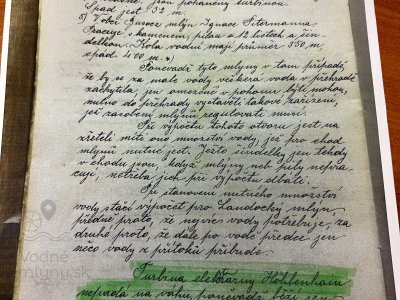 jsou poháněny turbinou.
Spád jest 32 m.
5) Vodní mlýn Ignace Sitermanna:
Pracuje s kamenem, pilou o 12 listech a šin-
delkou. Kola vodní mají průměr 350 m,
spád 4.00 m. 4)
Poněvadž tyto mlýny v tom případě,
že by se za malé vody veškera voda v přehradě
zachytila, jen omezeně v pohonu býti mohou,
nutno do přehrady vystavěti takové zařízení,
jež zásobení mlýnů regulovati musí.
Při výpočtu tohoto otvoru jest na
zřeteli míti ono množství vody, jež pro chod
mlýnů nutné jest. Ježto šindelky jen tehdy
v chodu jsou, když mlýny, nebo pily nepra-
cují, netřeba jich při výpočtu dbáti.
Při stanovení nutného množství
vody stačí výpočet pro Landocký mlýn,
předně proto, že nejvíce vody potřebuje, za
druhé proto, že dále po vodě předce jen
něco vody z přítoků přibude.
Turbina elektrárny Höhlenhain
nepadá na váhu, poněvadž běží jen
Vodné
mlyny.sk